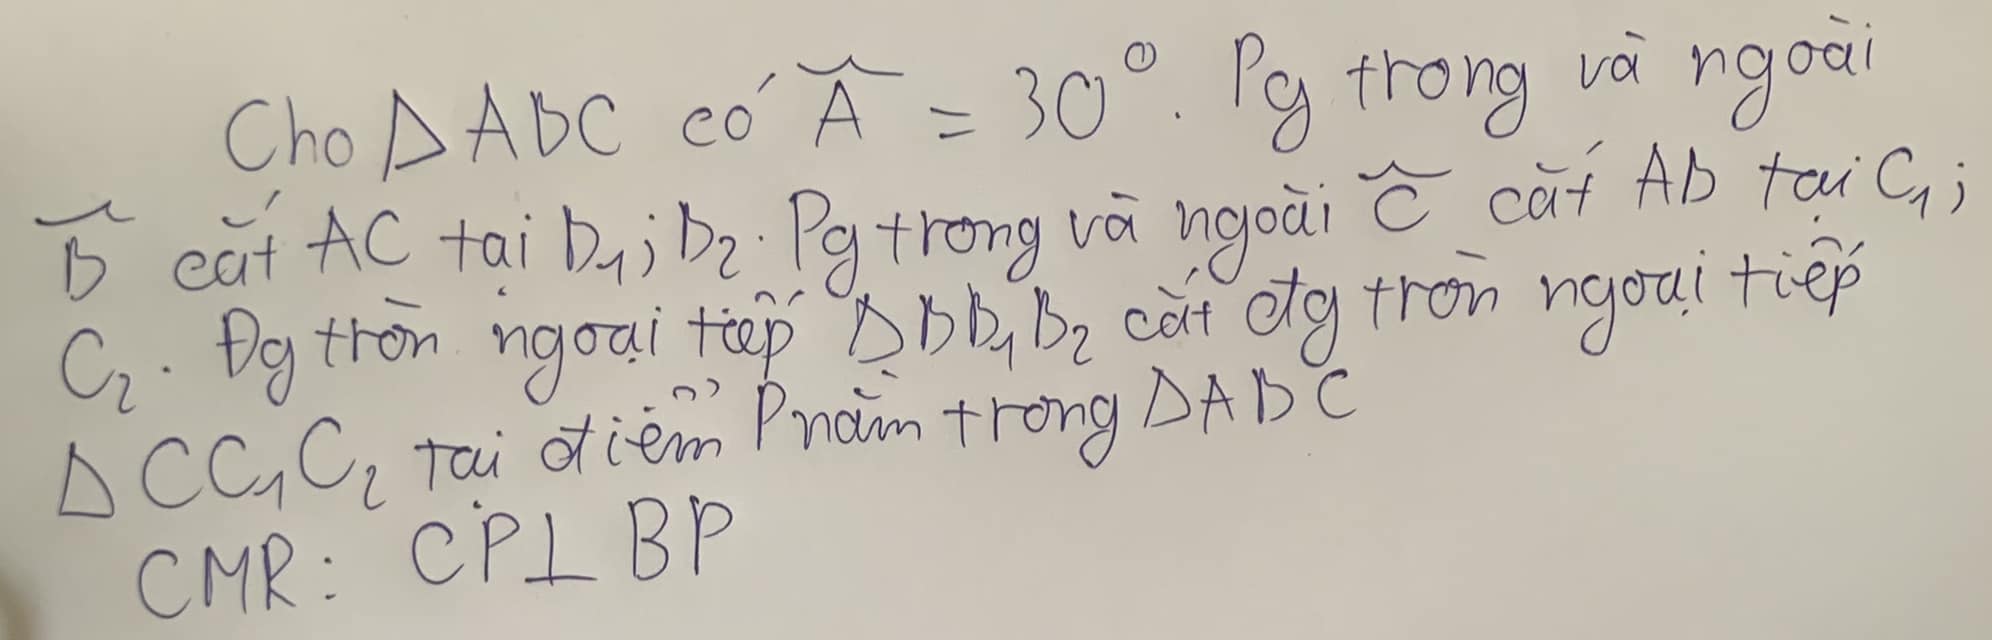 Cho ΔABC có Â = 30°. Pg trong và ngoài
B̂ cắt AC tại B₁; B₂. Pg trong và ngoài Ĉ cắt AB tại C₁;
C₂. Đg tròn ngoại tiếp ΔBB₁B₂ cắt đg tròn ngoại tiếp
ΔCC₁C₂ tại điểm P nằm trong ΔABC
CMR: CP⊥BP